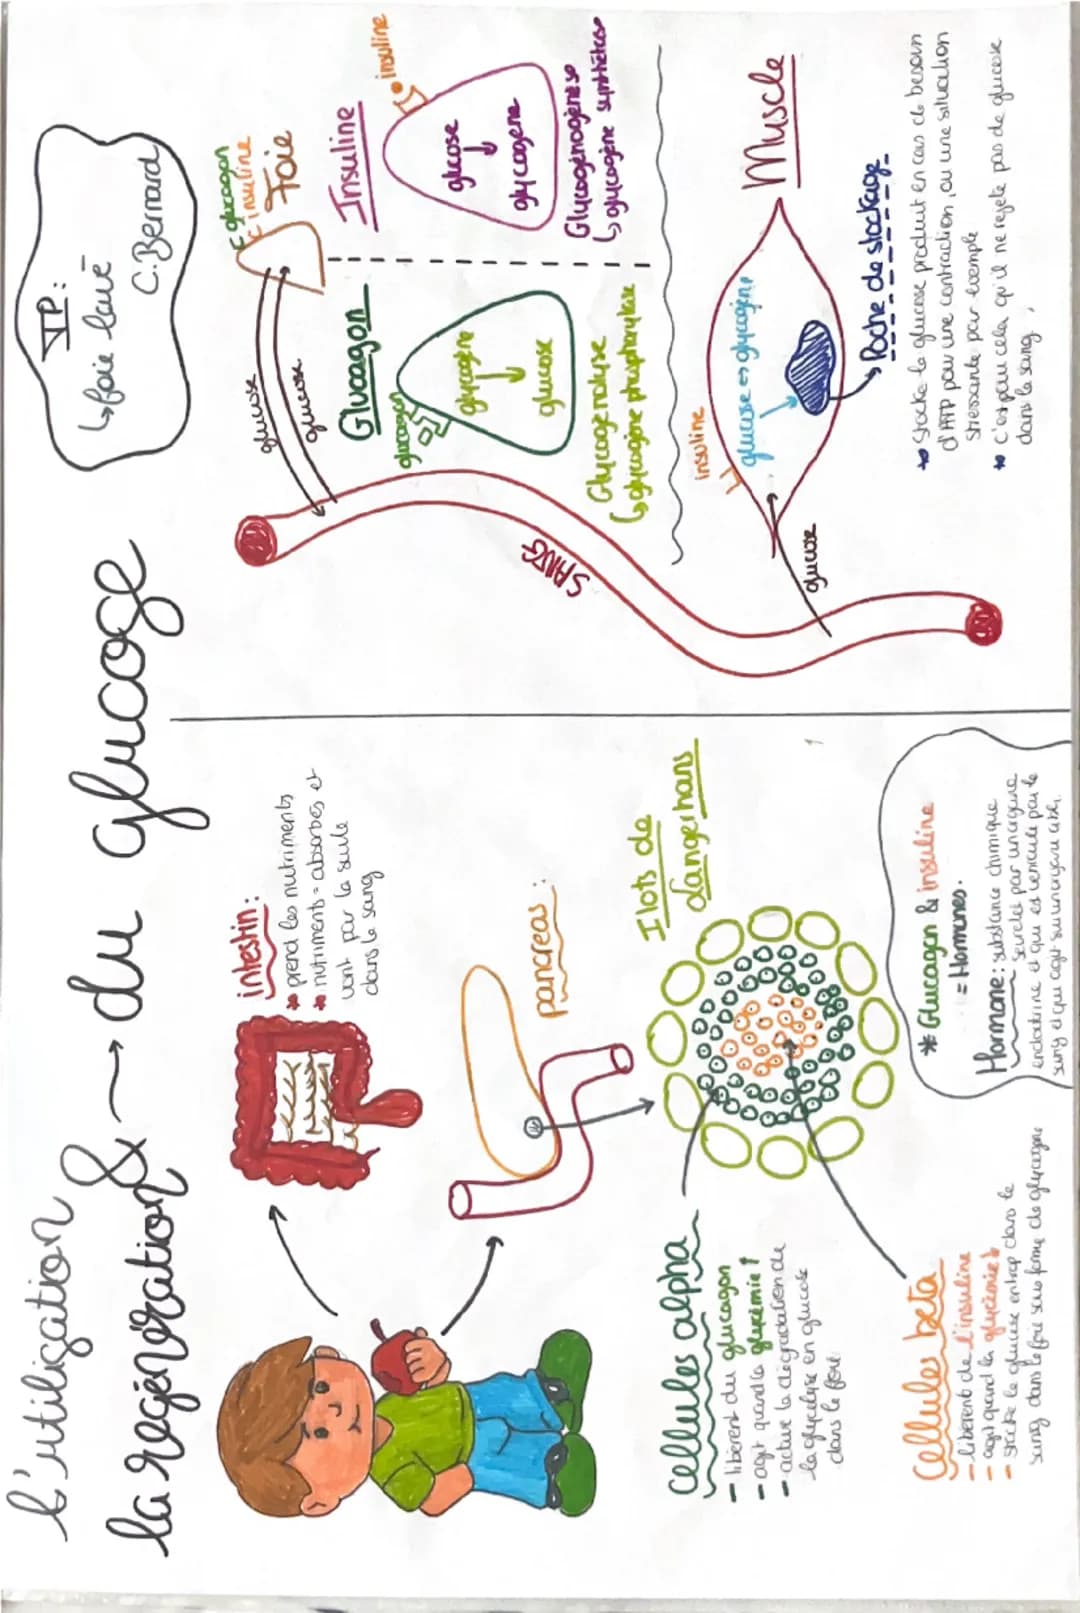 l'utilisation
&
la régénération → du glucose
TP:
↳ foie lavé
C. Bernard
intestin:
prend les nutriments
nutriments = absorbés et
vont par la suite
dans le sang
pancreas:
Ilots de
Langerhans
Cellules alpha
- libèrent du glucagon
- agit quand la glycémie ↑
- active la dégradation de
la glycolyse en glucose
dans le foie
Cellules beta
- libèrent de l'insuline
- agit quand la glycémie ↓
- stocke le glucose en trop dans le
sang dans le foie sous forme de glycogène
* Glucagon & insuline
= Hormones.
Hormone: substance chimique
secretée par un organe
endocrine et qui est véhiculé par le
sang et qui agit sur un organe cible.
glucagon
insuline
Foie
glucose
glucose
SANG
Glucagon
glucagon
glycogène
↓
glucose
Glycogenolyse
↳ glycogène phosphorylase
Insuline
insuline
glucose
↓
glycogene
Glycogénogénèse
↳ glycogène synthétase
Muscle
insuline
glucose ↔ glycogène
glucose
→ Poche de stockage
Stocke le glucose produit en cas de besoin
d'ATP pour une contraction, ou une situation
stressante par exemple
c'est pour cela qu'il ne rejete pas de glucose
dans le sang.